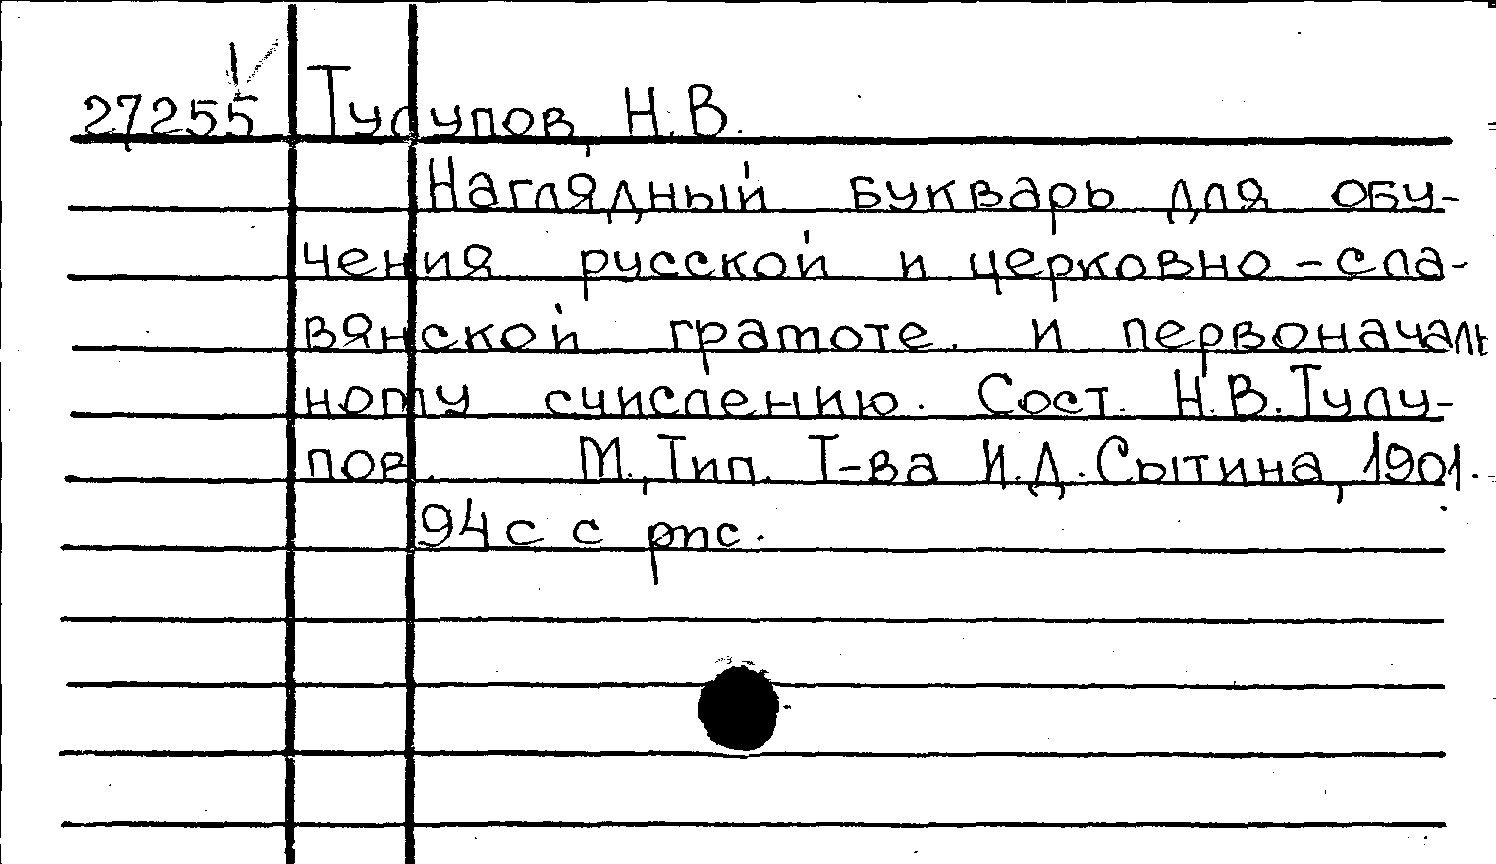 27255 Тулупов, Н.В.
Наглядный букварь для обу-
чения русской и церковно-сла-
вянской грамоте. и первоначаль
ному счислению. Сост. Н.В.Тулу-
пов. М., Тип. Т-ва И.Д.Сытина, 1901.
94 с с рис.